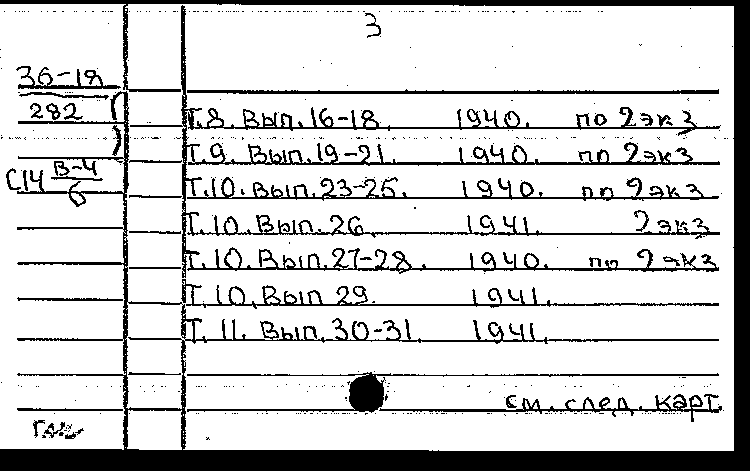 3
36-18
282
С14 В-4
6
Т.8. Вып.16-18. 1940. по 2экз
Т.9. Вып.19-21. 1940. по 2экз
Т.10. Вып.23-25. 1940. по 2экз
Т.10. Вып.26. 1941. 2экз
Т.10. Вып.27-28. 1940. по 2экз
Т.10. Вып 29. 1941.
Т.11. Вып.30-31. 1941.
см. след. карт.